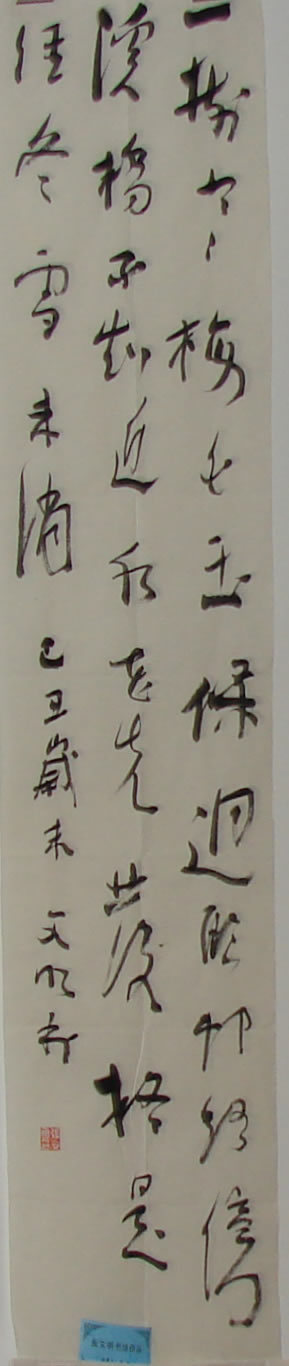 一樹寒梅白玉條迥臨村路傍
溪橋不知近水花先發疑是
經冬雪未消 己丑歲末 文明書